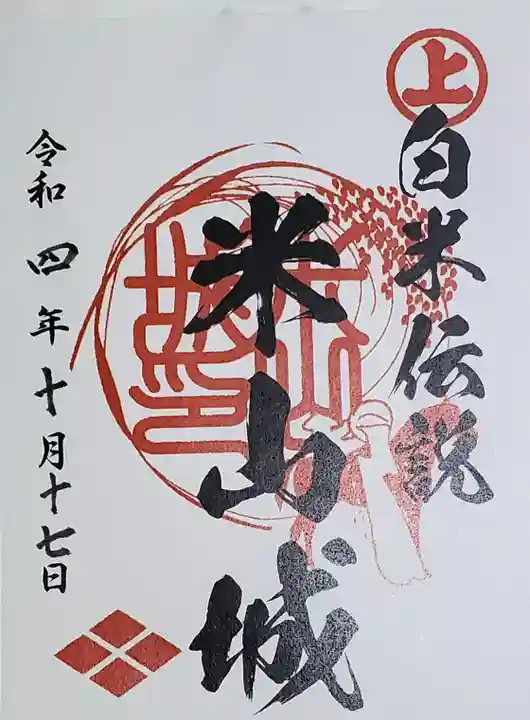 上
白米伝説
米山城
令和四年十月十七日